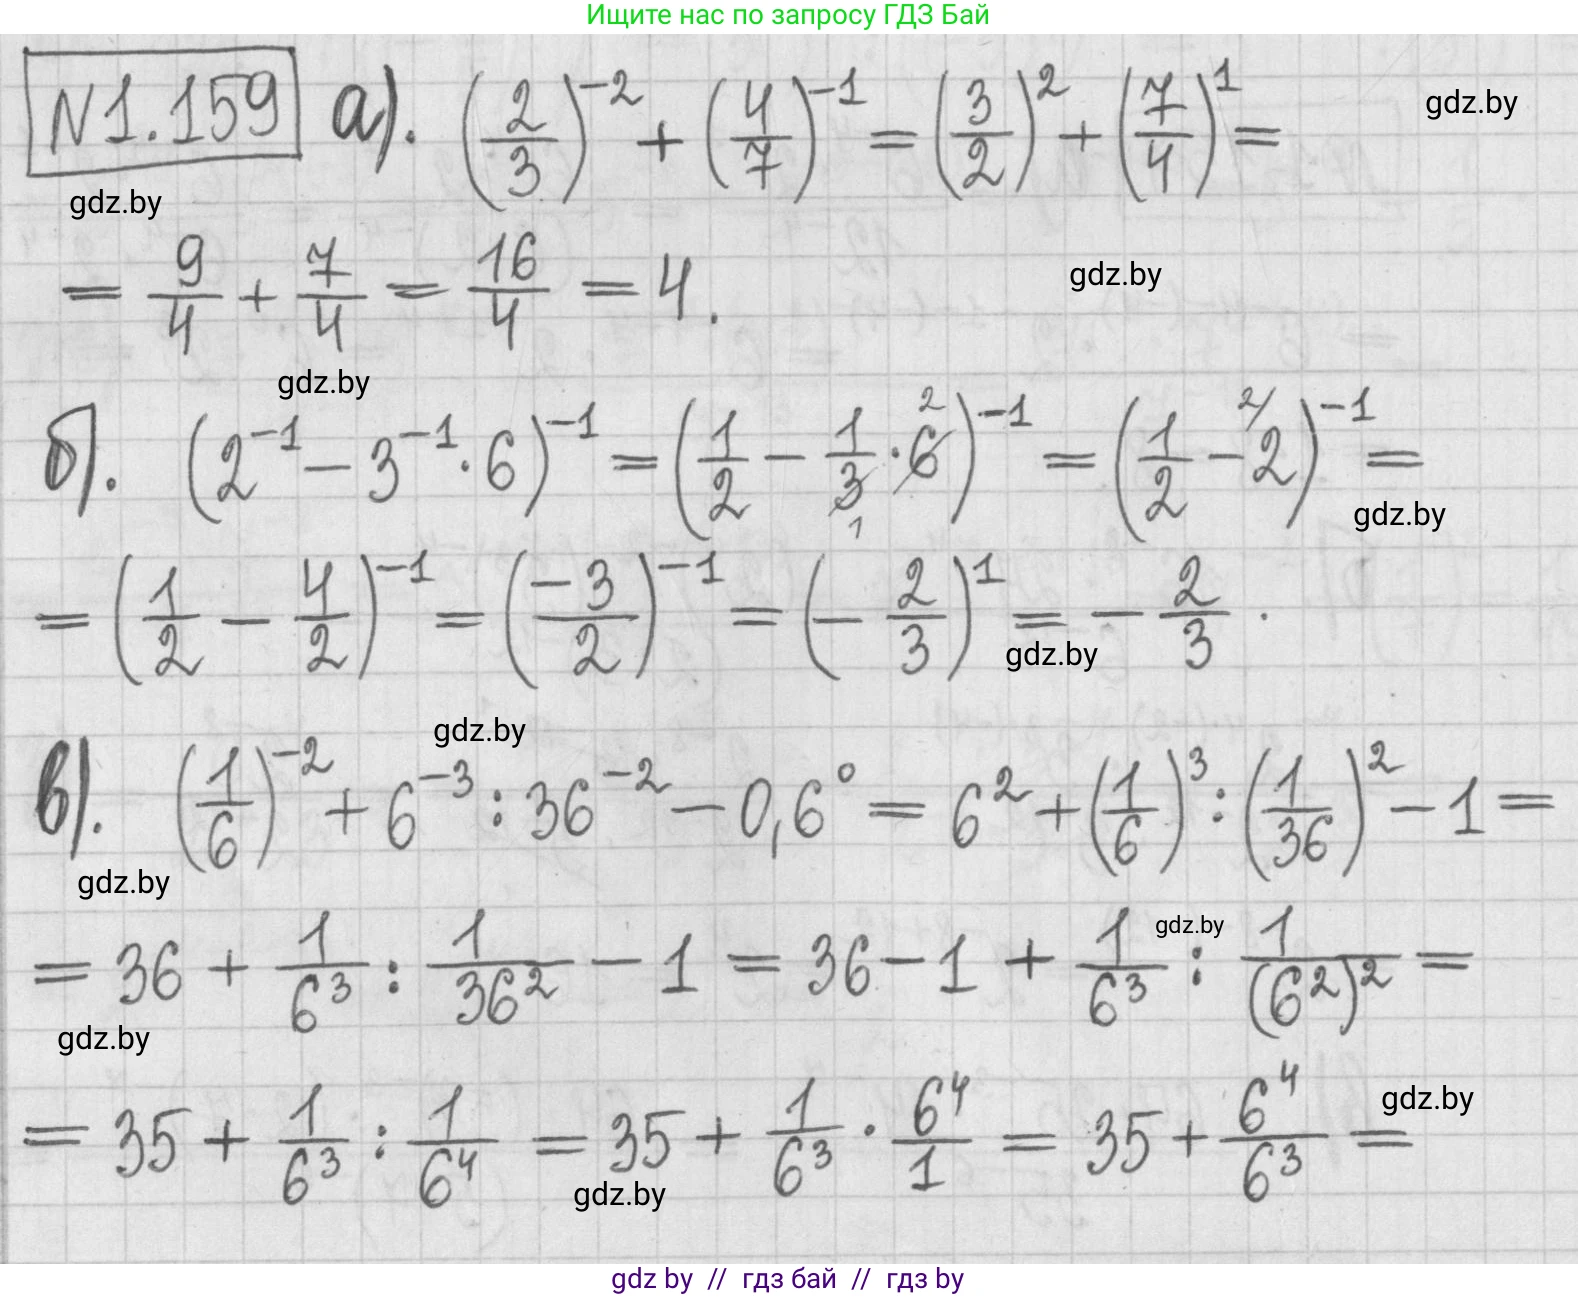 Ищите нас по запросу ГДЗ Бай
N1.159 а). (2/3)^-2 + (4/7)^-1 = (3/2)^2 + (7/4)^1 =
gdz.by
gdz.by
= 9/4 + 7/4 = 16/4 = 4.
gdz.by
gdz.by
б). (2^-1 - 3^-1 · 6)^-1 = (1/2 - 1/3 · 6)^-1 = (1/2 - 2)^-1 =
gdz.by
= (1/2 - 4/2)^-1 = (-3/2)^-1 = (-2/3)^1 = -2/3.
gdz.by
gdz.by
в). (1/6)^-2 + 6^-3 : 36^-2 - 0,6^0 = 6^2 + (1/6)^3 : (1/36)^2 - 1 =
gdz.by
= 36 + 1/6^3 : 1/36^2 - 1 = 36 - 1 + 1/6^3 : 1/(6^2)^2 =
gdz.by
gdz.by
= 35 + 1/6^3 : 1/6^4 = 35 + 1/6^3 · 6^4/1 = 35 + 6^4/6^3 =
gdz.by
gdz.by
gdz by // гдз бай // гдз by